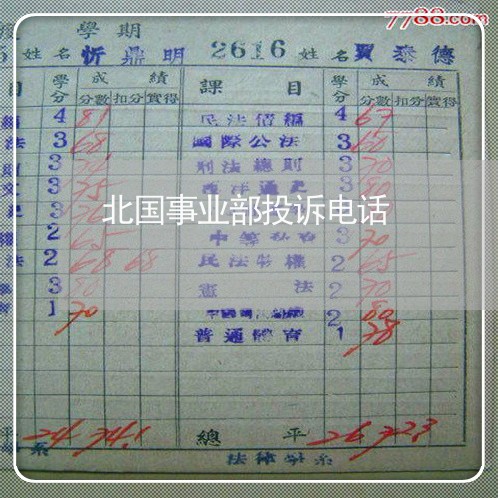 7788.com
學期
姓名 忻鼎明 2616 姓名 賈泰德
目 學分 成績 課目 學分 成績
分數 扣分 實得 分數 扣分 實得
4 81 民法債編 4 67
法 3 68 國際公法 3 60
3 刑法總則 3 70
3 75 西洋通史 3 80
北国事业部投诉电话
2 65 中等國文 3 70
法 2 68 68 民法物權 2 65
3 80 憲法 2 70
1 70 2 80
普通體育 1 78
平 24 74.1 總平 26 72.3
系 法律學系